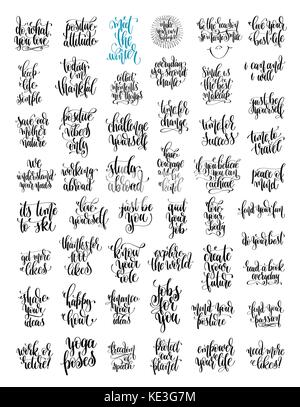 do what
you love
positive
attitude
meet
the
winter
make
someone
be the reason
someone smile
live your
best life
keep
life
simple
today
i am
thankful
collect
moments
not things
everyday
is a second
chance
smile is
the best
makeup
i can and
i will
save our
mother
nature
positive
vibes
only
challenge
yourself
time for
change
time for
success
just be
yourself
time to
travel
we
understand
your needs
working
abroad
study
abroad
have
courage
and be
kind
if you believe
you can
achieve
peace of
mind
its time
to ski
love
yourself
just be
you
quit
your
job
love
your
body
find your fun
do your best
get more
likes!
thanks for
1000
likes!
know
your
role
explore
the world
create
your
future
read a book
everyday
share
your
ideas
happy
hour
finance
your
ideas
jobs
for
you
mind your
posture
find your
passion
work or
retire?
yoga
poses
freedom
of
speech
protect
our
planet
empower
your
life
need more
likes!
alamy
Image ID: KE3G7M
www.alamy.com